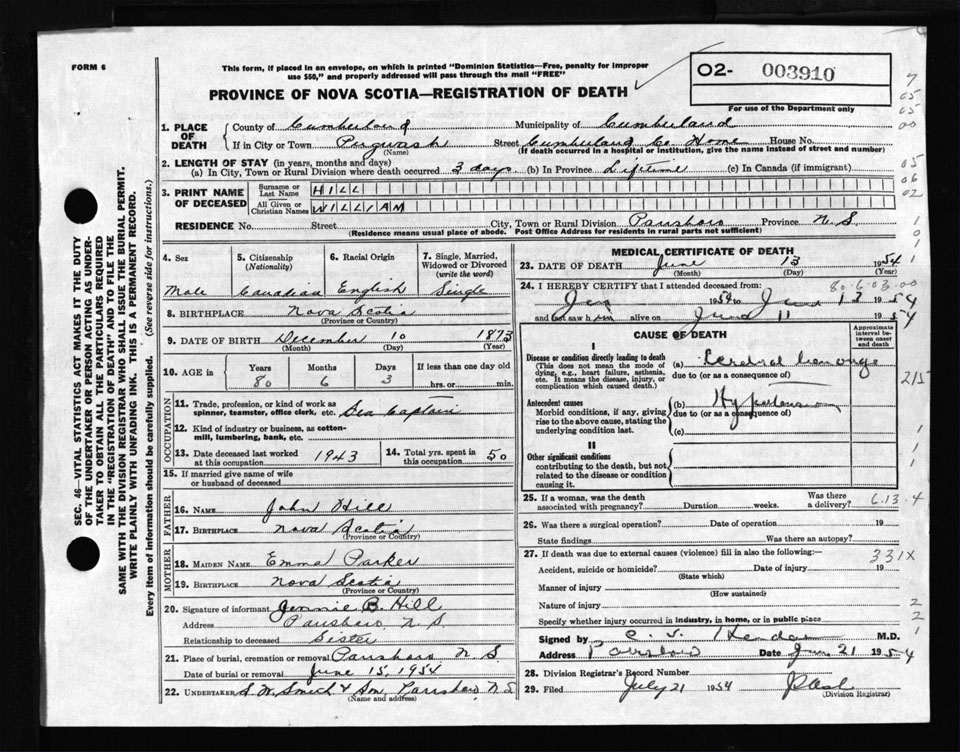 FORM 6
This form, if placed in an envelope, on which is printed "Dominion Statistics—Free, penalty for improper
use $50," and properly addressed will pass through the mail "FREE"
PROVINCE OF NOVA SCOTIA—REGISTRATION OF DEATH
O2- 003910
For use of the Department only
7
05
05
00
05
06
02
1
0
1
SEC. 46—VITAL STATISTICS ACT MAKES IT THE DUTY
OF THE UNDERTAKER OR PERSON ACTING AS UNDER-
TAKER TO OBTAIN ALL THE PARTICULARS REQUIRED
IN THE "REGISTRATION OF DEATH" AND TO FILE THE
SAME WITH THE DIVISION REGISTRAR WHO SHALL ISSUE THE BURIAL PERMIT.
WRITE PLAINLY WITH UNFADING INK. THIS IS A PERMANENT RECORD.
Every item of information should be carefully supplied. (See reverse side for instructions.)
1. PLACE OF DEATH
County of Cumberland Municipality of Cumberland
If in City or Town Pugwash Street Cumberland Co. Home House No.
(Name) (If death occurred in a hospital or institution, give the name instead of street and number)
2. LENGTH OF STAY (in years, months and days)
(a) In City, Town or Rural Division where death occurred 3 days (b) In Province Lifetime (c) In Canada (if immigrant)
3. PRINT NAME OF DECEASED
Surname or Last Name HILL
All Given or Christian Names WILLIAM
RESIDENCE No. Street City, Town or Rural Division Parrsboro Province N.S.
(Residence means usual place of abode. Post Office Address for residents in rural parts not sufficient)
4. Sex
Male
5. Citizenship
(Nationality)
Canadian
6. Racial Origin
English
7. Single, Married,
Widowed or Divorced
(write the word)
Single
8. BIRTHPLACE Nova Scotia
(Province or Country)
9. DATE OF BIRTH December 10 1873
(Month) (Day) (Year)
10. AGE in
Years Months Days If less than one day old
80 6 3 hrs. or min.
OCCUPATION
11. Trade, profession, or kind of work as
spinner, teamster, office clerk, etc. Sea Captain
12. Kind of industry or business, as cotton-
mill, lumbering, bank, etc.
13. Date deceased last worked
at this occupation 1943
14. Total yrs. spent in
this occupation 50
15. If married give name of wife
or husband of deceased
FATHER
16. NAME John Hill
17. BIRTHPLACE Nova Scotia
(Province or Country)
MOTHER
18. MAIDEN NAME Emma Parker
19. BIRTHPLACE Nova Scotia
(Province or Country)
20. Signature of informant Jennie B. Hill
Address Parrsboro N.S.
Relationship to deceased Sister
21. Place of burial, cremation or removal Parrsboro N.S.
Date of burial or removal June 15, 1954
22. UNDERTAKER S. W. Smith & Son, Parrsboro N.S.
(Name and address)
MEDICAL CERTIFICATE OF DEATH
23. DATE OF DEATH June 13 1954
(Month) (Day) (Year)
24. I HEREBY CERTIFY that I attended deceased from:
80-6-03-00
Jan 1954 to June 13 1954
and last saw him alive on June 11 1954
CAUSE OF DEATH
Approximate
interval be-
tween onset
and death
I
Disease or condition directly leading to death
(This does not mean the mode of
dying, e.g., heart failure, asthenia,
etc. It means the disease, injury, or
complication which caused death.)
(a) Cerebral
due to (or as a consequence of)
215
Antecedent causes
Morbid conditions, if any, giving
rise to the above cause, stating the
underlying condition last.
(b) Hypertension
due to (or as a consequence of)
(c)
II
Other significant conditions
contributing to the death, but not
related to the disease or condition
causing it.
1
1
1
1
25. If a woman, was the death
associated with pregnancy? Duration weeks. Was there
a delivery?
6.13.4
26. Was there a surgical operation? Date of operation 19
State findings Was there an autopsy?
27. If death was due to external causes (violence) fill in also the following:—
331X
Accident, suicide or homicide? Date of injury 19
(State which)
Manner of injury
(How sustained)
Nature of injury
Specify whether injury occurred in industry, in home, or in public place
2
2
1
Signed by C. S. M.D.
Address Parrsboro Date June 21 1954
28. Division Registrar's Record Number
29. Filed July 21 1954
(Division Registrar)